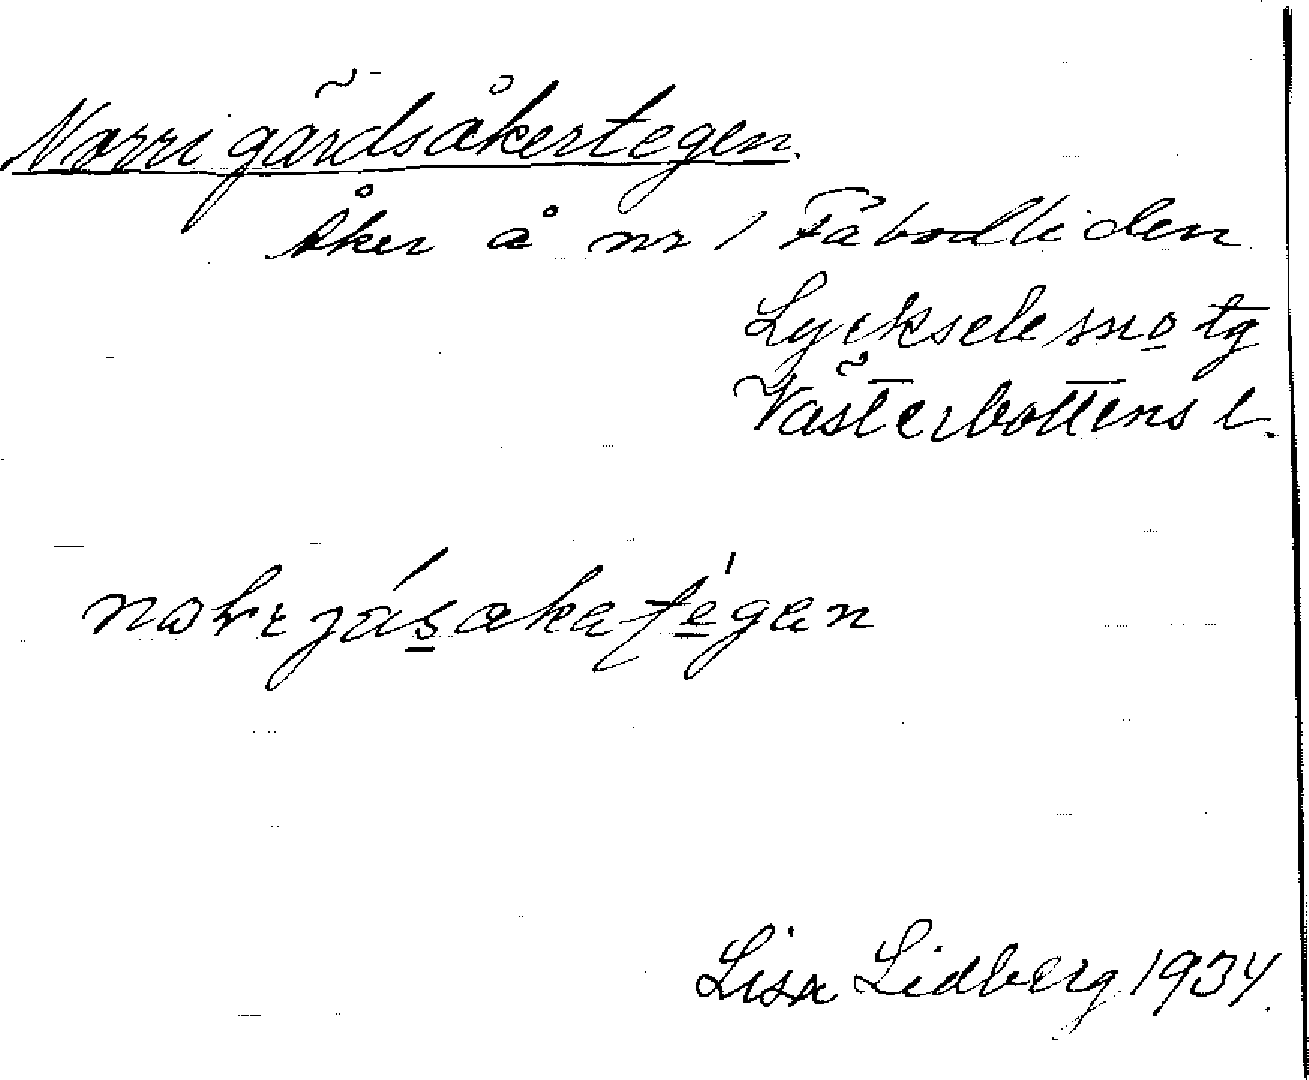 Norrigärdsåkertegen.
Åker å nr 1 Fäbodliden
Lycksele sn o tg
Västerbottens l.
Lisa Lidberg 1934.